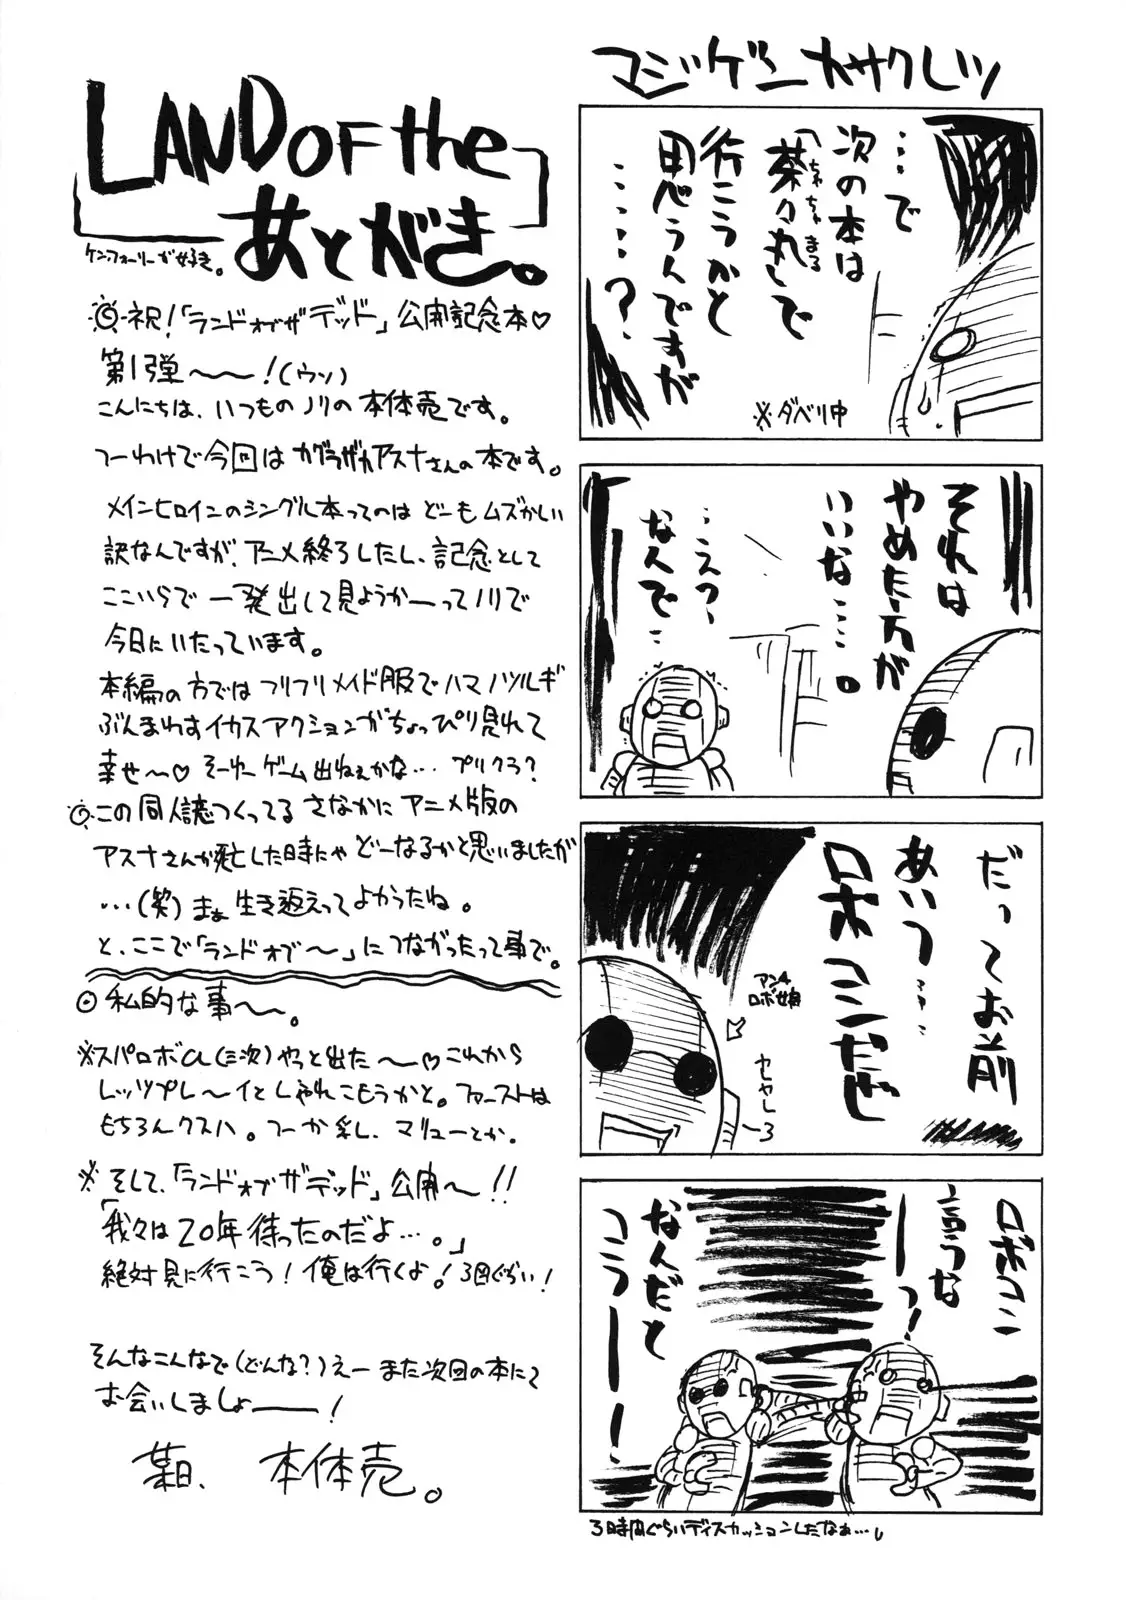 マジゲンカサクレツ
…で
次の本は
「茶々丸」で
ちゃちゃまる
行こうかと
思うんですが
……?
※ダベリ中
それは
やめた方が
いいな…。
…えっ…
なんで…
だってお前
あいつ…
ロボコンだぜ
アンチ
ロボ娘
ロボコン
言うな
ーーっ!
なんだと
コラーー!
3時間ぐらいディスカッションしたなぁ…。
LAND OF the
あとがき。
ケン・フォーリーが好き。
◎祝!「ランドオブザデッド」公開記念本♡
第1弾〜〜!(ウソ)
こんにちは、いつものノリの本体売です。
つーわけで今回はカグラザカアスナさんの本です。
メインヒロインのシングル本ってのはどーもムズかしい
訳なんですが、アニメ終了したし、記念として
ここいらで一発出して見ようかーってノリで
今日にいたっています。
本編の方ではフリフリメイド服でハマノツルギ
ぶんまわすイカスアクションがちょっぴり見れて
幸せ〜♡そーゆーゲーム出ねぇかな…プリクラ?
◎この同人誌つくってるさなかにアニメ版の
アスナさんが死亡した時にゃどーなるかと思いましたが
…(笑)まぁ生き返えってよかったね。
と、ここで「ランドオブ〜」につながったって事で。
◎私的な事〜。
※スパロボα(三次)やっと出た〜♡これから
レッツプレ〜イとしゃれこもうかと。ファーストは
もちろんクスハ。つーか乳、マリューとか。
※そして、「ランドオブザデッド」公開〜!!
「我々は20年待ったのだよ…。」
絶対見に行こう!俺は行くよ!3回ぐらい!
そんなこんなで(どんな?)えーまた次回の本にて
お会いしましょーー!
某日、本体売。